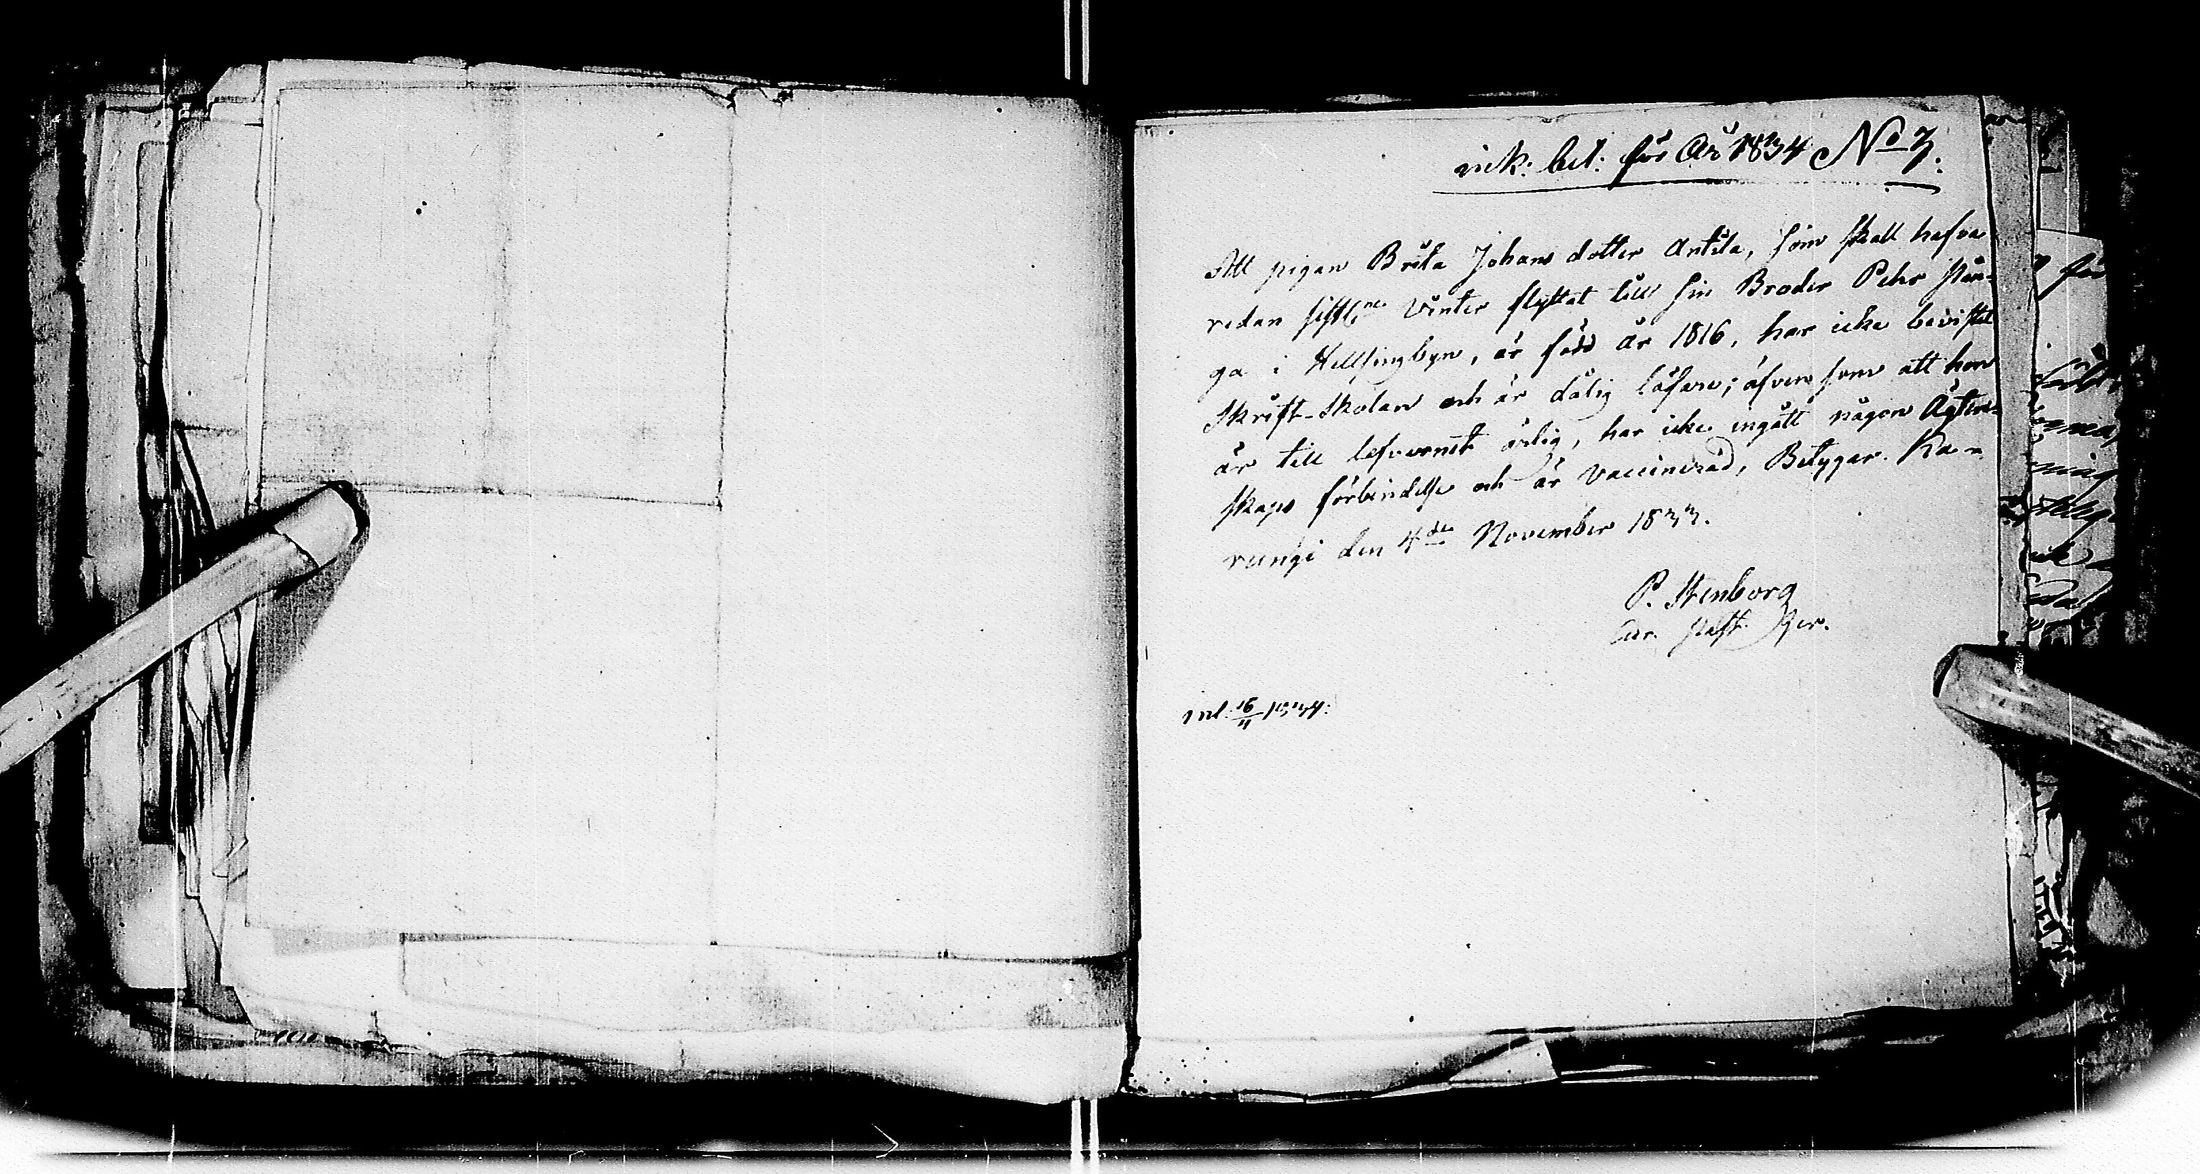 ink: bet: för År 1834 No 7.
Att pigan Brita Johans dotter Antila, som skall hafva
redan sistl:ne Vinter flyttat till sin Broder Pehr
ga i Hellsingbyn, är född år 1816, har icke bevistat
Skrift-Skolan och är dålig läsare; äfven som att hon
är till lefvernet ärlig, har icke ingått någon Äkten-
skaps förbindelse och är vaccinerad, Betygar. Ka-
rungi den 4de November 1833.
P. Stenborg
inl: 16/11 1834: